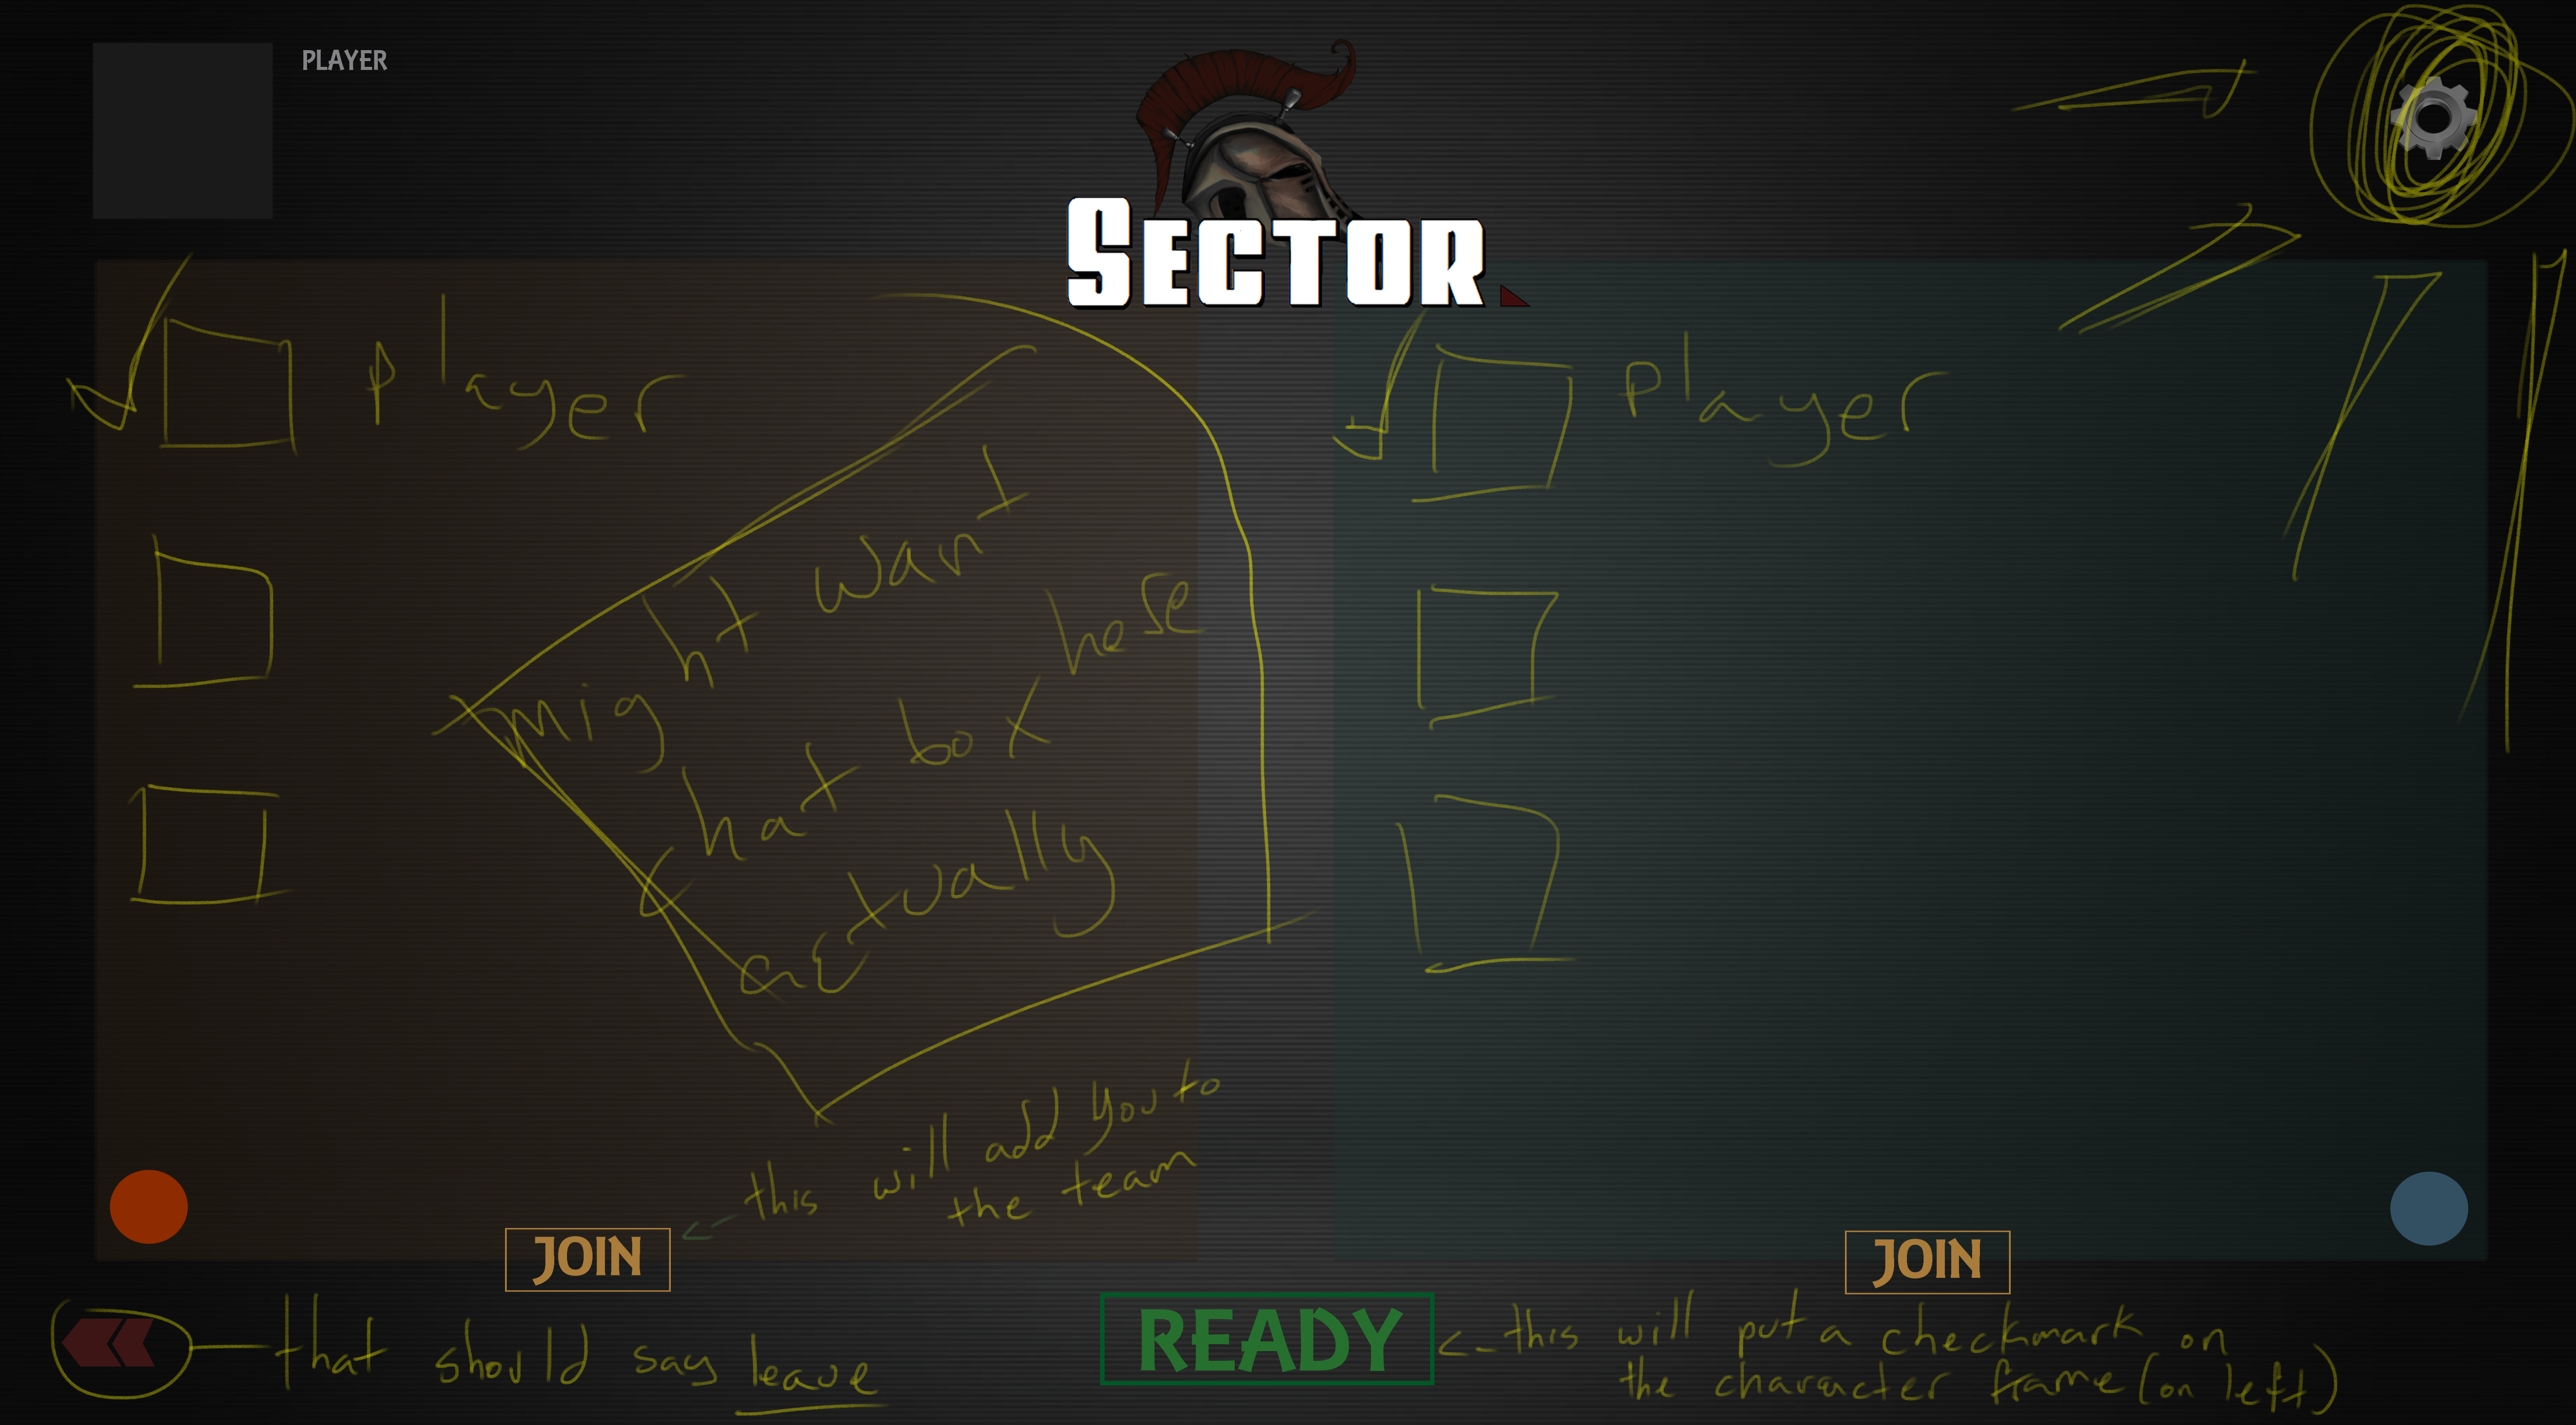 PLAYER
SECTOR
player
player
might want
chat box here
actually
this will add you to
the team
JOIN
JOIN
that should say leave
READY
this will put a checkmark on
the character frame (on left)